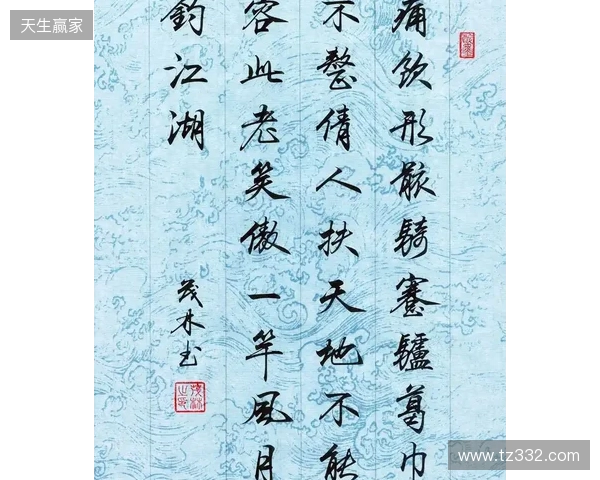 天生赢家
痛飲形骸騎蹇驢葛巾
不整倩人扶天地不能
容此老笑傲一竿風月
釣江湖
茂林书
www.tz332.com